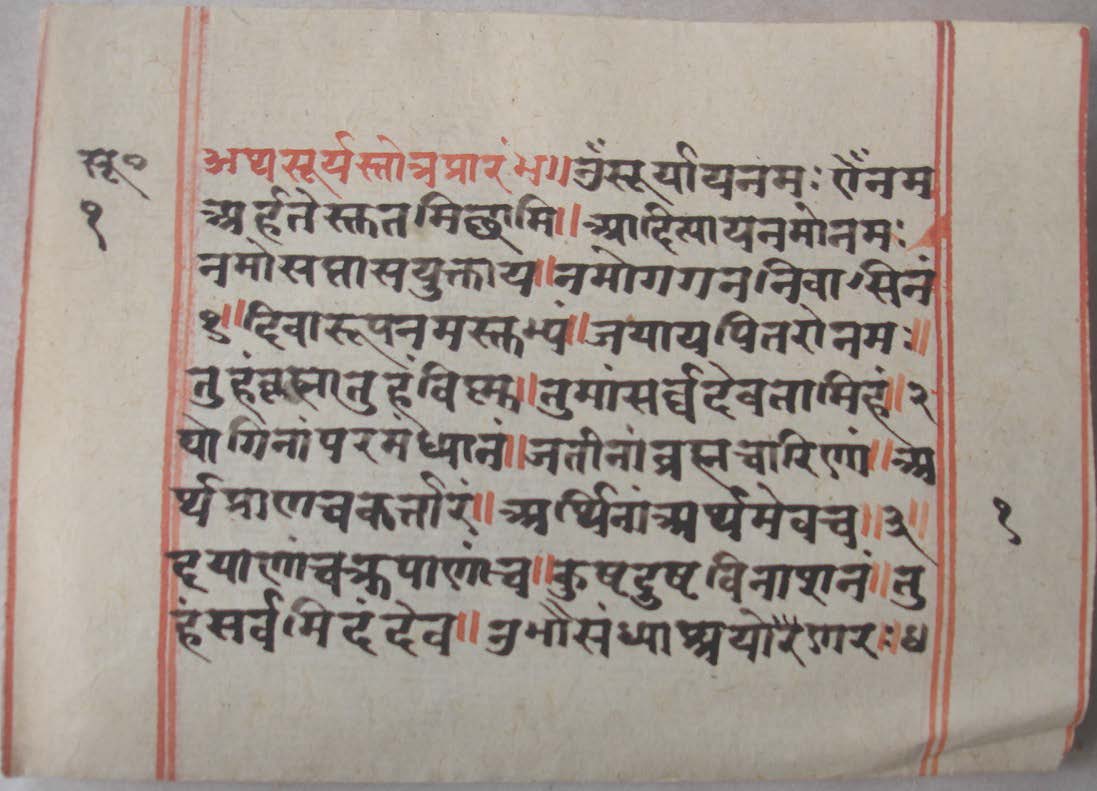 सू०
१
अथ सूर्यस्तोत्रप्रारंभ॥ ॐसूर्यायनमः ऐंनम
अर्हतेस्तनमिछामि॥ आदित्यायनमोनमः
नमोसप्तासयुक्ताय॥ नमोगगननिवासिनं
१॥ दिवारूपनमस्तुभ्यं॥ जयायपितरोनमः॥
तुहंब्रह्मातुहंविष्णु॥ तुमांसर्व्वदेवतामिहं॥ २
योगिनांपरमंध्यानं॥ जतीनांब्रह्मचारिणां॥ अ
र्थप्राणचकर्त्तारं॥ अर्थिनांअर्थमेवच॥ ३॥
हयाणांचक्रपाणांच॥ कुष्टदुष्टविनाशनं॥ तु
हंसर्वमिदंदेव॥
१